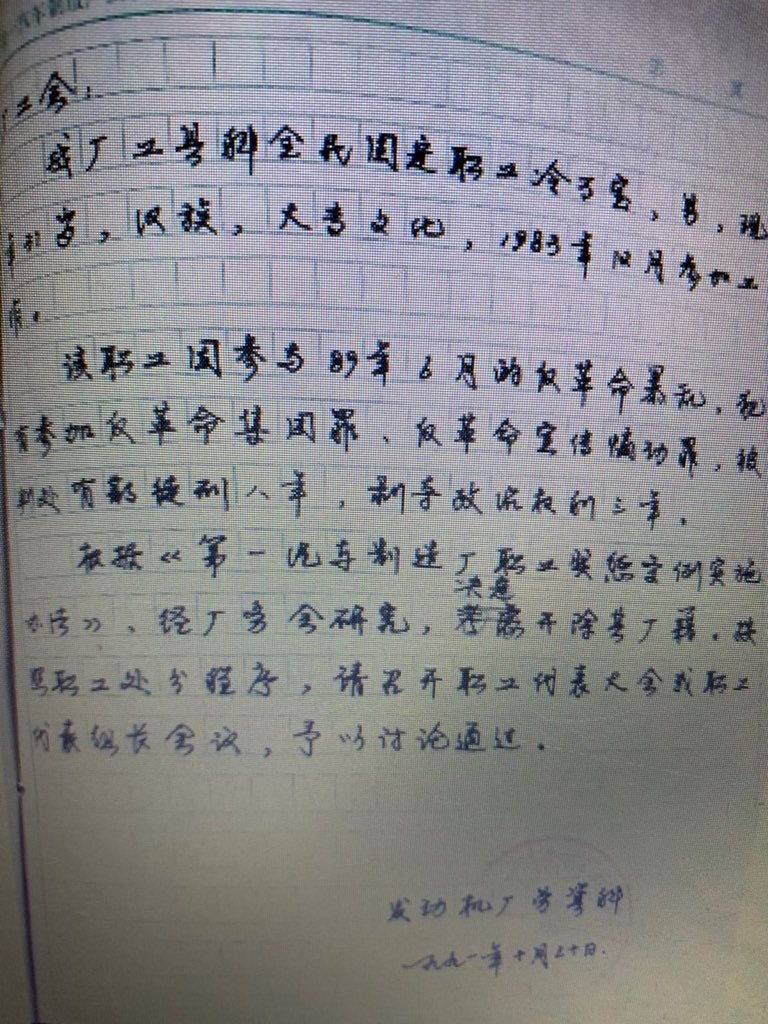 工会:
我厂工具科全民固定职工冷万宝,男,现
岁,汉族,大专文化,1983年12月参加工
作。
该职工因参与89年6月的反革命暴乱,犯
有参加反革命集团罪、反革命宣传煽动罪,被
判处有期徒刑八年,剥夺政治权利三年。
根据《第一汽车制造厂职工奖惩条例实施
决定
办法》,经厂务会研究,开除其厂籍。按
照职工处分程序,请召开职工代表大会或职工
代表组长会议,予以讨论通过。
发动机厂劳资科
一九九一年十月二十日.